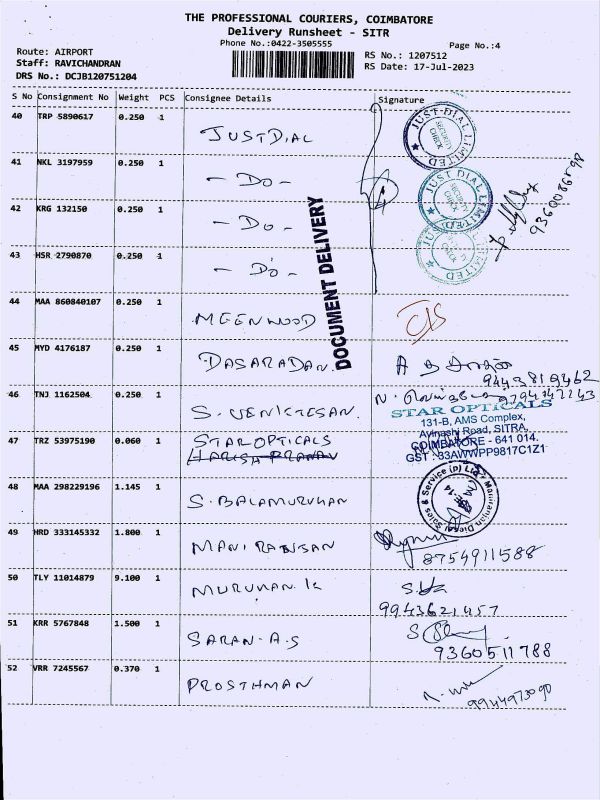 THE PROFESSIONAL COURIERS, COIMBATORE
Delivery Runsheet - SITR
Phone No.:0422-3505555
Page No.:4
Route: AIRPORT
Staff: RAVICHANDRAN
DRS No.: DCJB120751204
RS No.: 1207512
RS Date: 17-Jul-2023
S No Consignment No Weight PCS Consignee Details Signature
40 TRP 5890617 0.250 1 JUSTDIAL
JUST DIAL LIMITED SECURITY CHECK
41 NKL 3197959 0.250 1 - DO -
JUST DIAL LIMITED SECURITY CHECK
9360086898
42 KRG 132150 0.250 1 - DO -
JUST DIAL LIMITED
43 HSR 2790870 0.250 1 - DO -
DOCUMENT DELIVERY
44 MAA 860840107 0.250 1 MEENWOOD
45 MYD 4176187 0.250 1 DASARADAN.
9443819462
46 TNJ 1162504 0.250 1 S. VENKTESAN.
STAR OPTICALS
131-B, AMS Complex,
Avinashi Road, SITRA,
COIMBATORE - 641 014.
GST : 33AWWPP9817C1Z1
47 TRZ 53975190 0.060 1 STAR OPTICALS
HARISH PRANAV
48 MAA 298229196 1.145 1 S. BALAMURUHAN
Maniranjan Diesel Sales & Service (p) Ltd
49 HRD 333145332 1.800 1 MANI RANJSAN
8754911588
50 TLY 11014879 9.100 1 MURUHAN. K
9943621457
51 KRR 5767848 1.500 1 SARAN-A.S
9360511788
52 VRR 7245567 0.370 1 PROSTHMAN
9944973090